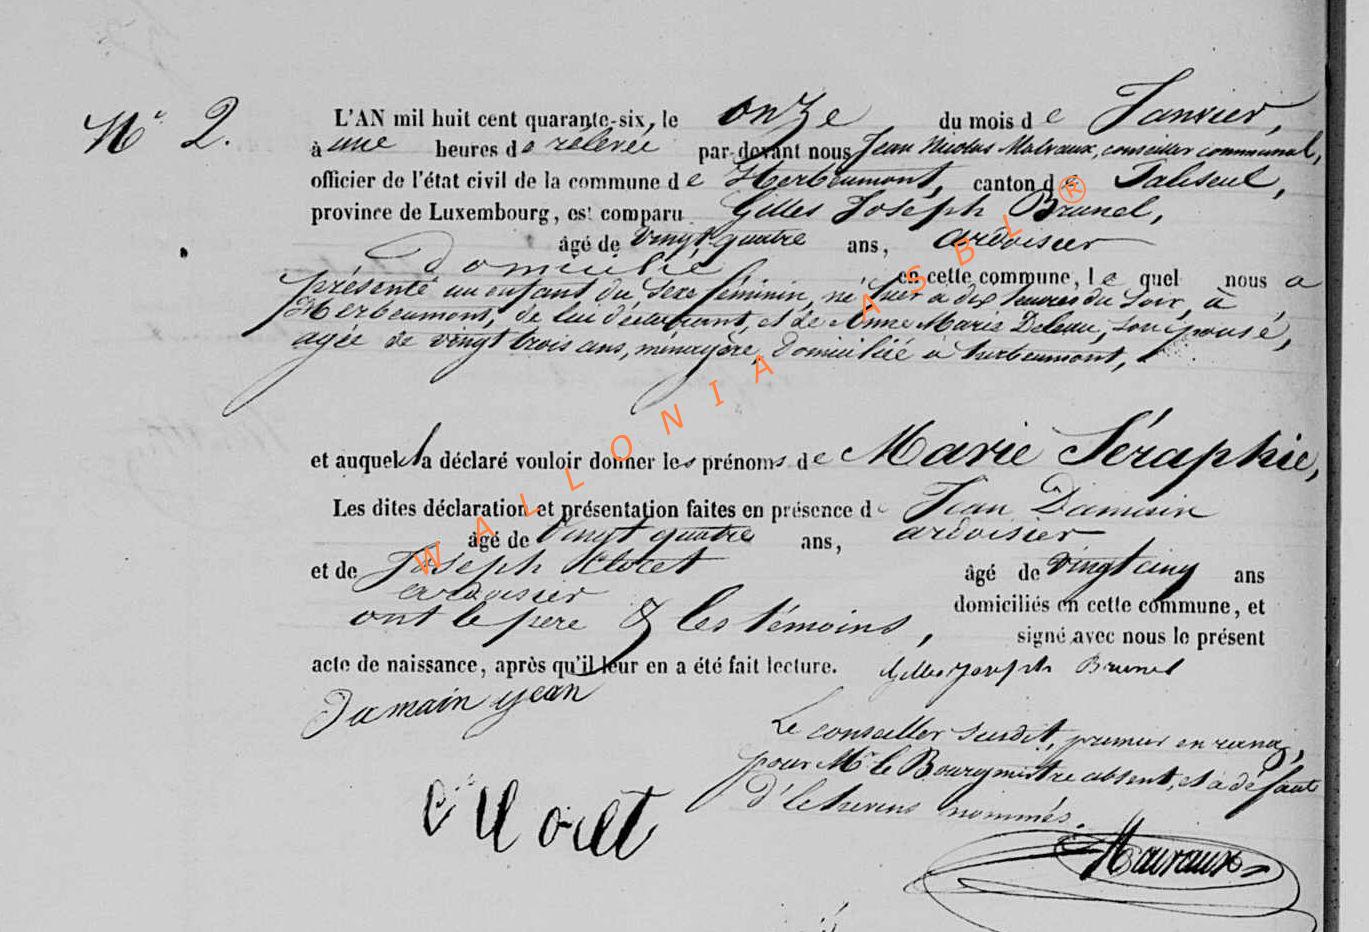 N° 2.
L'AN mil huit cent quarante-six, le onze du mois de Janvier,
à une heures de relevée par-devant nous Jean Nicolas Malvaux, conseiller communal,
officier de l'état civil de la commune de Herbeumont, canton de Paliseul,
province de Luxembourg, est comparu Gilles Joseph Brunel,
âgé de vingt-quatre ans, ardoisier
domicilié en cette commune, le quel nous a
présenté un enfant du sexe féminin, né hier à dix heures du soir, à
Herbeumont, de lui déclarant, et de Anne Marie Deleau, son épouse,
agée de vingt trois ans, ménagère, domiciliée à herbeumont,
et auquel il a déclaré vouloir donner les prénoms de Marie Séraphie,
Les dites déclaration et présentation faites en présence de Jean Damain
âgé de vingt quatre ans, ardoisier
et de Joseph âgé de vingt cinq ans
ardoisier domiciliés en cette commune, et
ont le père & les témoins, signé avec nous le présent
acte de naissance, après qu'il leur en a été fait lecture. Gilles Joseph Brunel
Damain jean
Le conseiller susdit, premier en rang,
pour Mr le Bourgmestre absent, et à défaut
d'Echevins nommés.
WALLONIA ASBL ®